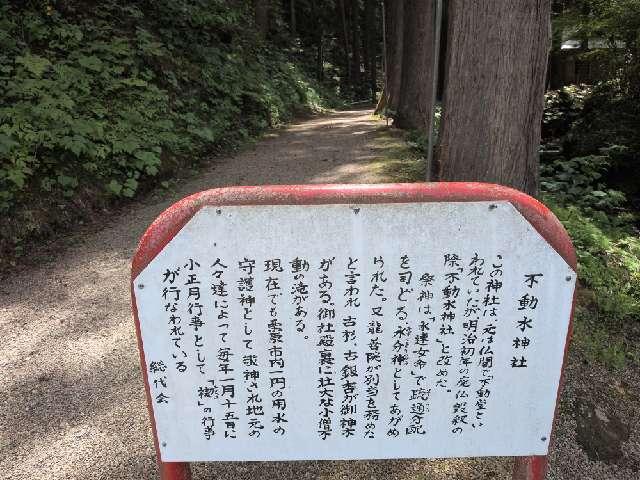 不動水神社
この神社は、元は仏閣で「不動堂」とい
われていたが明治初年の廃仏毀釈の
際「不動水神社」と改めた。
祭神は、水速女命で疏通分配
を司どる、水分神としてあがめ
られた。又龍善院が別当を務めた
と言われ古杉、古銀杏が御神木
がある。御社殿裏に壮大な小僧子
動の滝がある。
現在でも栗原市内一円の用水の
守護神として求神され地元の
人々達によって毎年一月十五日に
小正月行事として、「 」の行事
が行なわれている
総代会